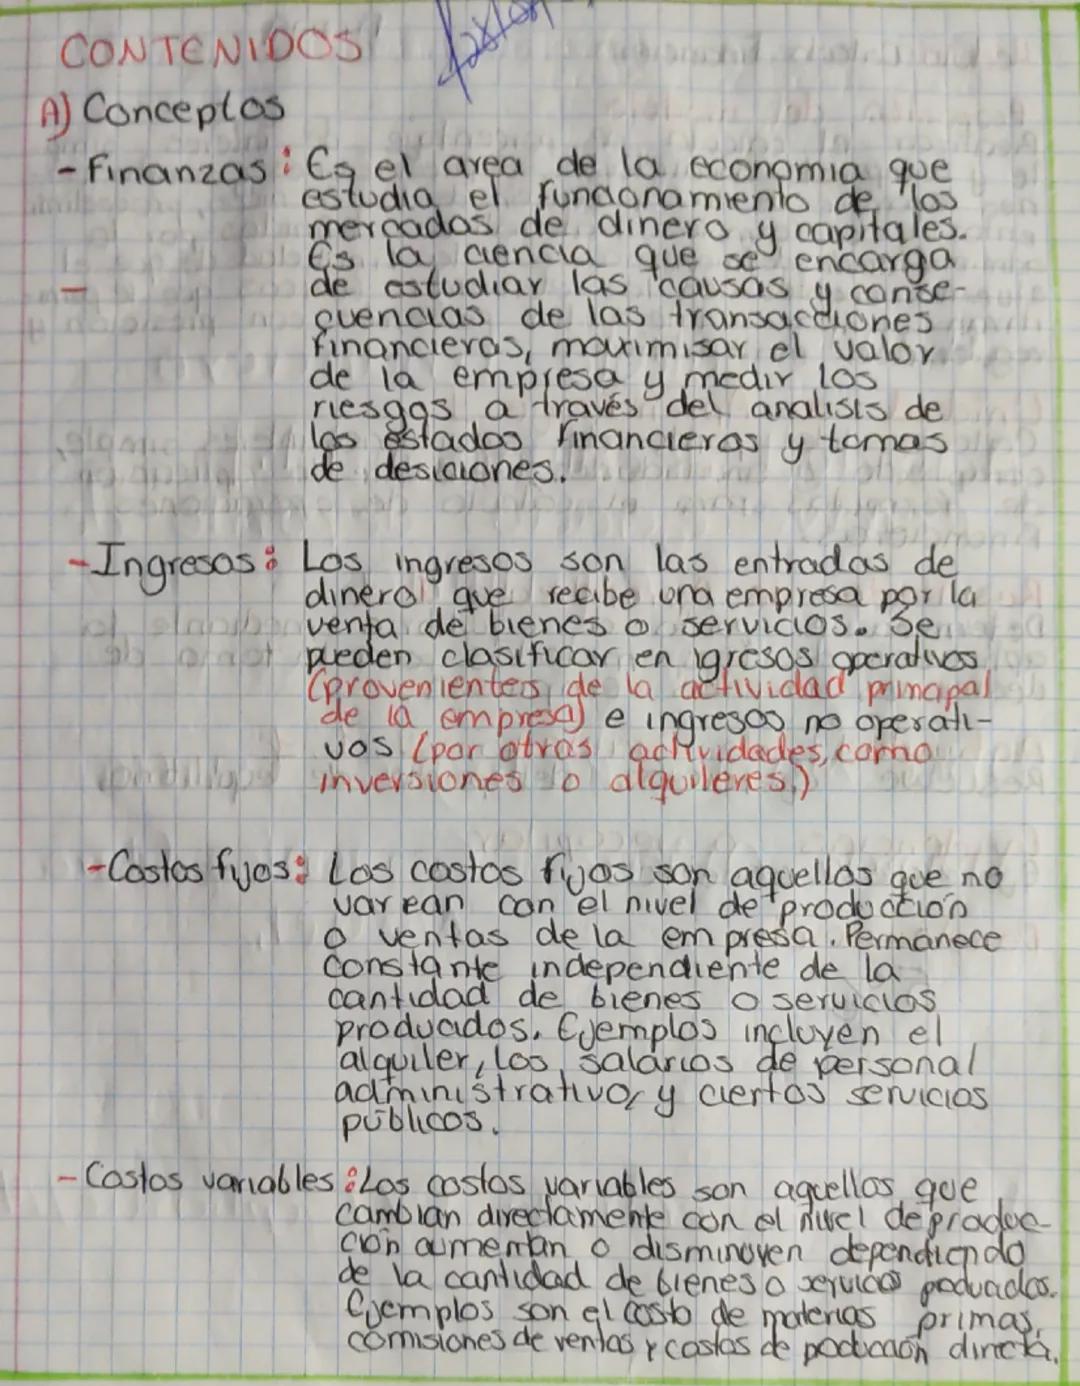 CONTENIDOS
A) Conceptos
- Finanzas: Es el area de la economia que
estudia el funcionamiento de los
mercados de dinero y capitales.
Es la ciencia que se encarga
de estudiar las causas y conse-
cuencias de las transacciones
financieras, maximisar el valor
de la empresa y medir los
riesgos a través del analisis de
los estados financieros y tomas
de desiciones.
- Ingresos: Los ingresos son las entradas de
dinero que recibe una empresa por la
venta de bienes o servicios. Se
pueden clasificar en igresos operativos
(provenientes de la actividad principal
de la empresa) e ingresos no operati-
vos (por otras actividades, como
inversiones o alquileres.)
- Costos fijos: Los costos fijos son aquellos que no
varean con el nivel de producción
o ventas de la empresa. Permanece
constante independiente de la
cantidad de bienes o servicios
producidos. Ejemplos incluyen el
alquiler, los salarios de personal
administrativo, y ciertos servicios
públicos.
- Costos variables: Los costos variables son aquellos que
cambian directamente con el nivel de produc-
ción aumentan o disminuyen dependiendo
de la cantidad de bienes o servicios producidos.
Ejemplos son el costo de materias primas,
comisiones de ventas y costos de producción directa.